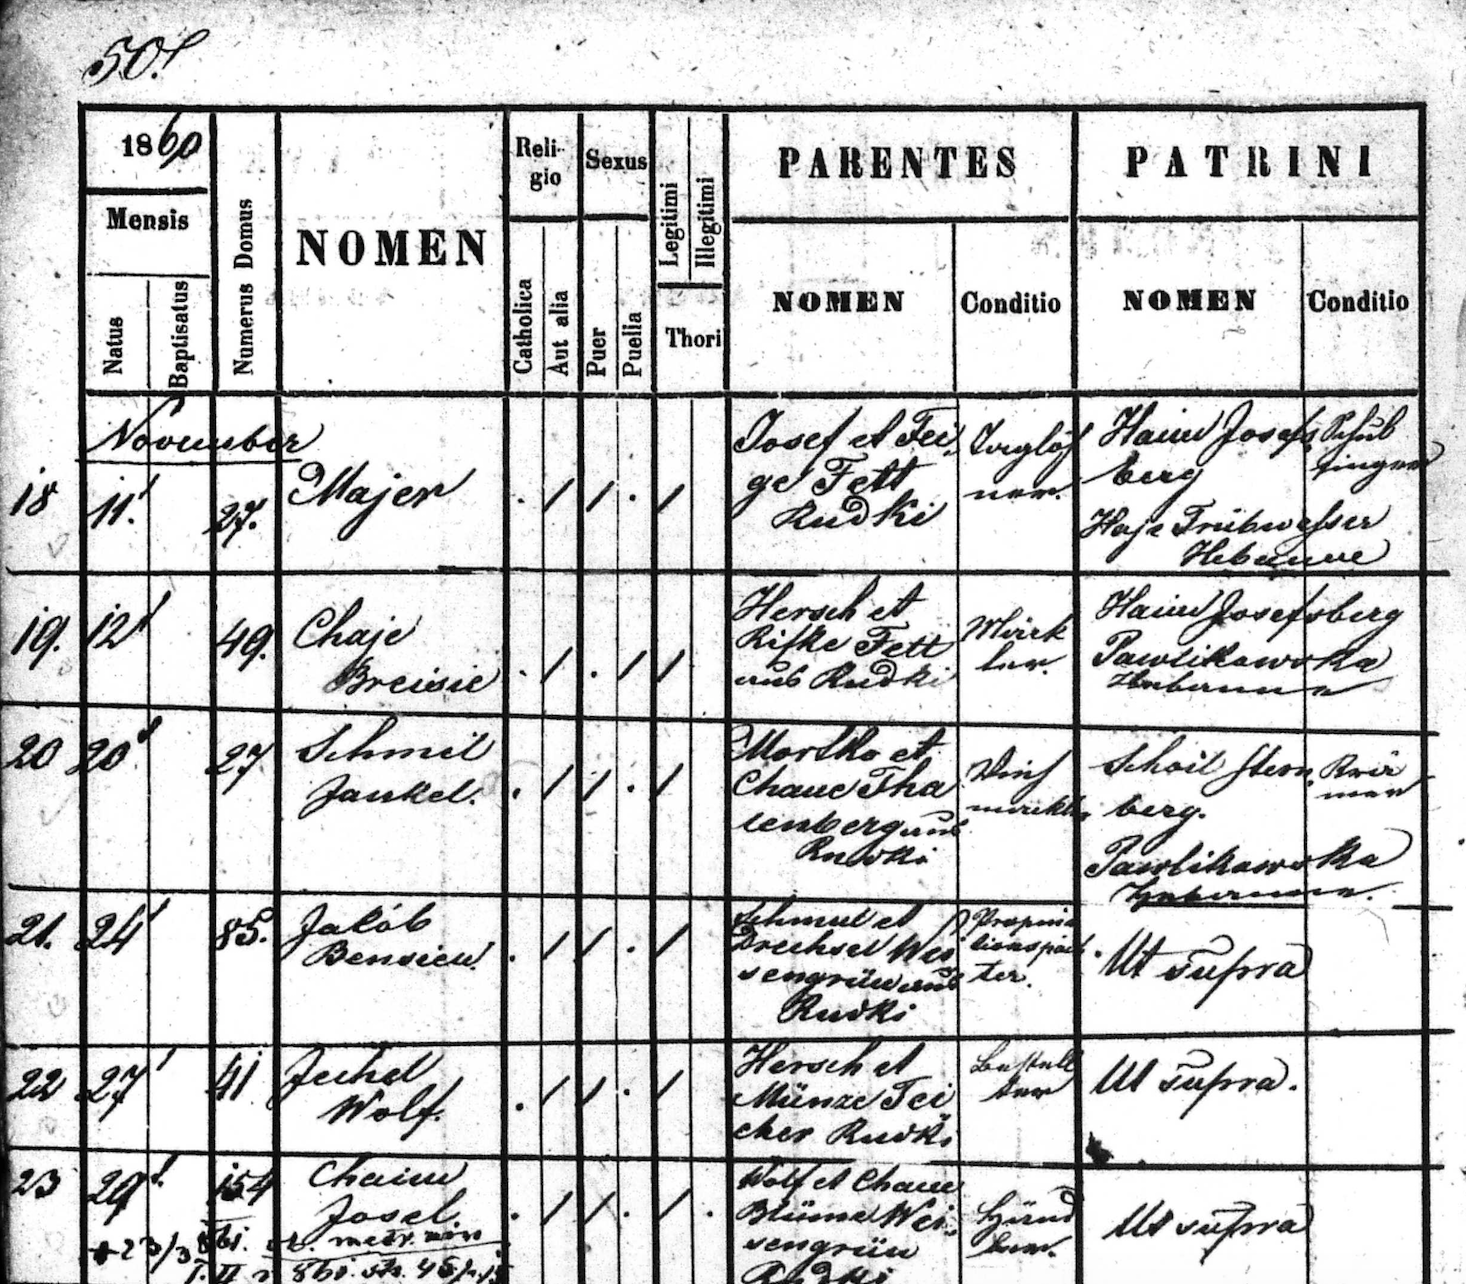 50.
1860
Mensis
Natus
Baptisatus
Numerus Domus
NOMEN
Reli-
gio
Catholica
Aut alia
Sexus
Puer
Puella
Legitimi
Illegitimi
Thori
PARENTES
NOMEN
Conditio
PATRINI
NOMEN
Conditio
November
18
11.
27.
Majer
Josef et Fei
ge Fett
Rudki
Haim Josefs
berg
Haje
Hebamme
19.
12
49.
Chaje
Breisie
Hersch et
Rifke Fett
aus Rudki
Mäck
ler.
Haim Josefsberg
Pawlikowska
Hebamme
20
20
27
Schmil
Jankel.
Mortko et
Chane Tha
lenberg aus
Rudki
Schoil Stern
berg.
Pawlikowska
Hebamme.
21.
24
85.
Jakób
Bensien.
Schmul et
Drechsel Wei
sengrün aus
Rudki
Propina
tionspäch
ter.
Ut supra
22
27
41
Jechel
Wolf.
Hersch et
Münze Tei
cher Rudki
Ut supra.
23
29
154
Chaim
Josel
Wolf et Chane
Blüme Wei
sengrün
Rudki
Händ
ler.
Ut supra